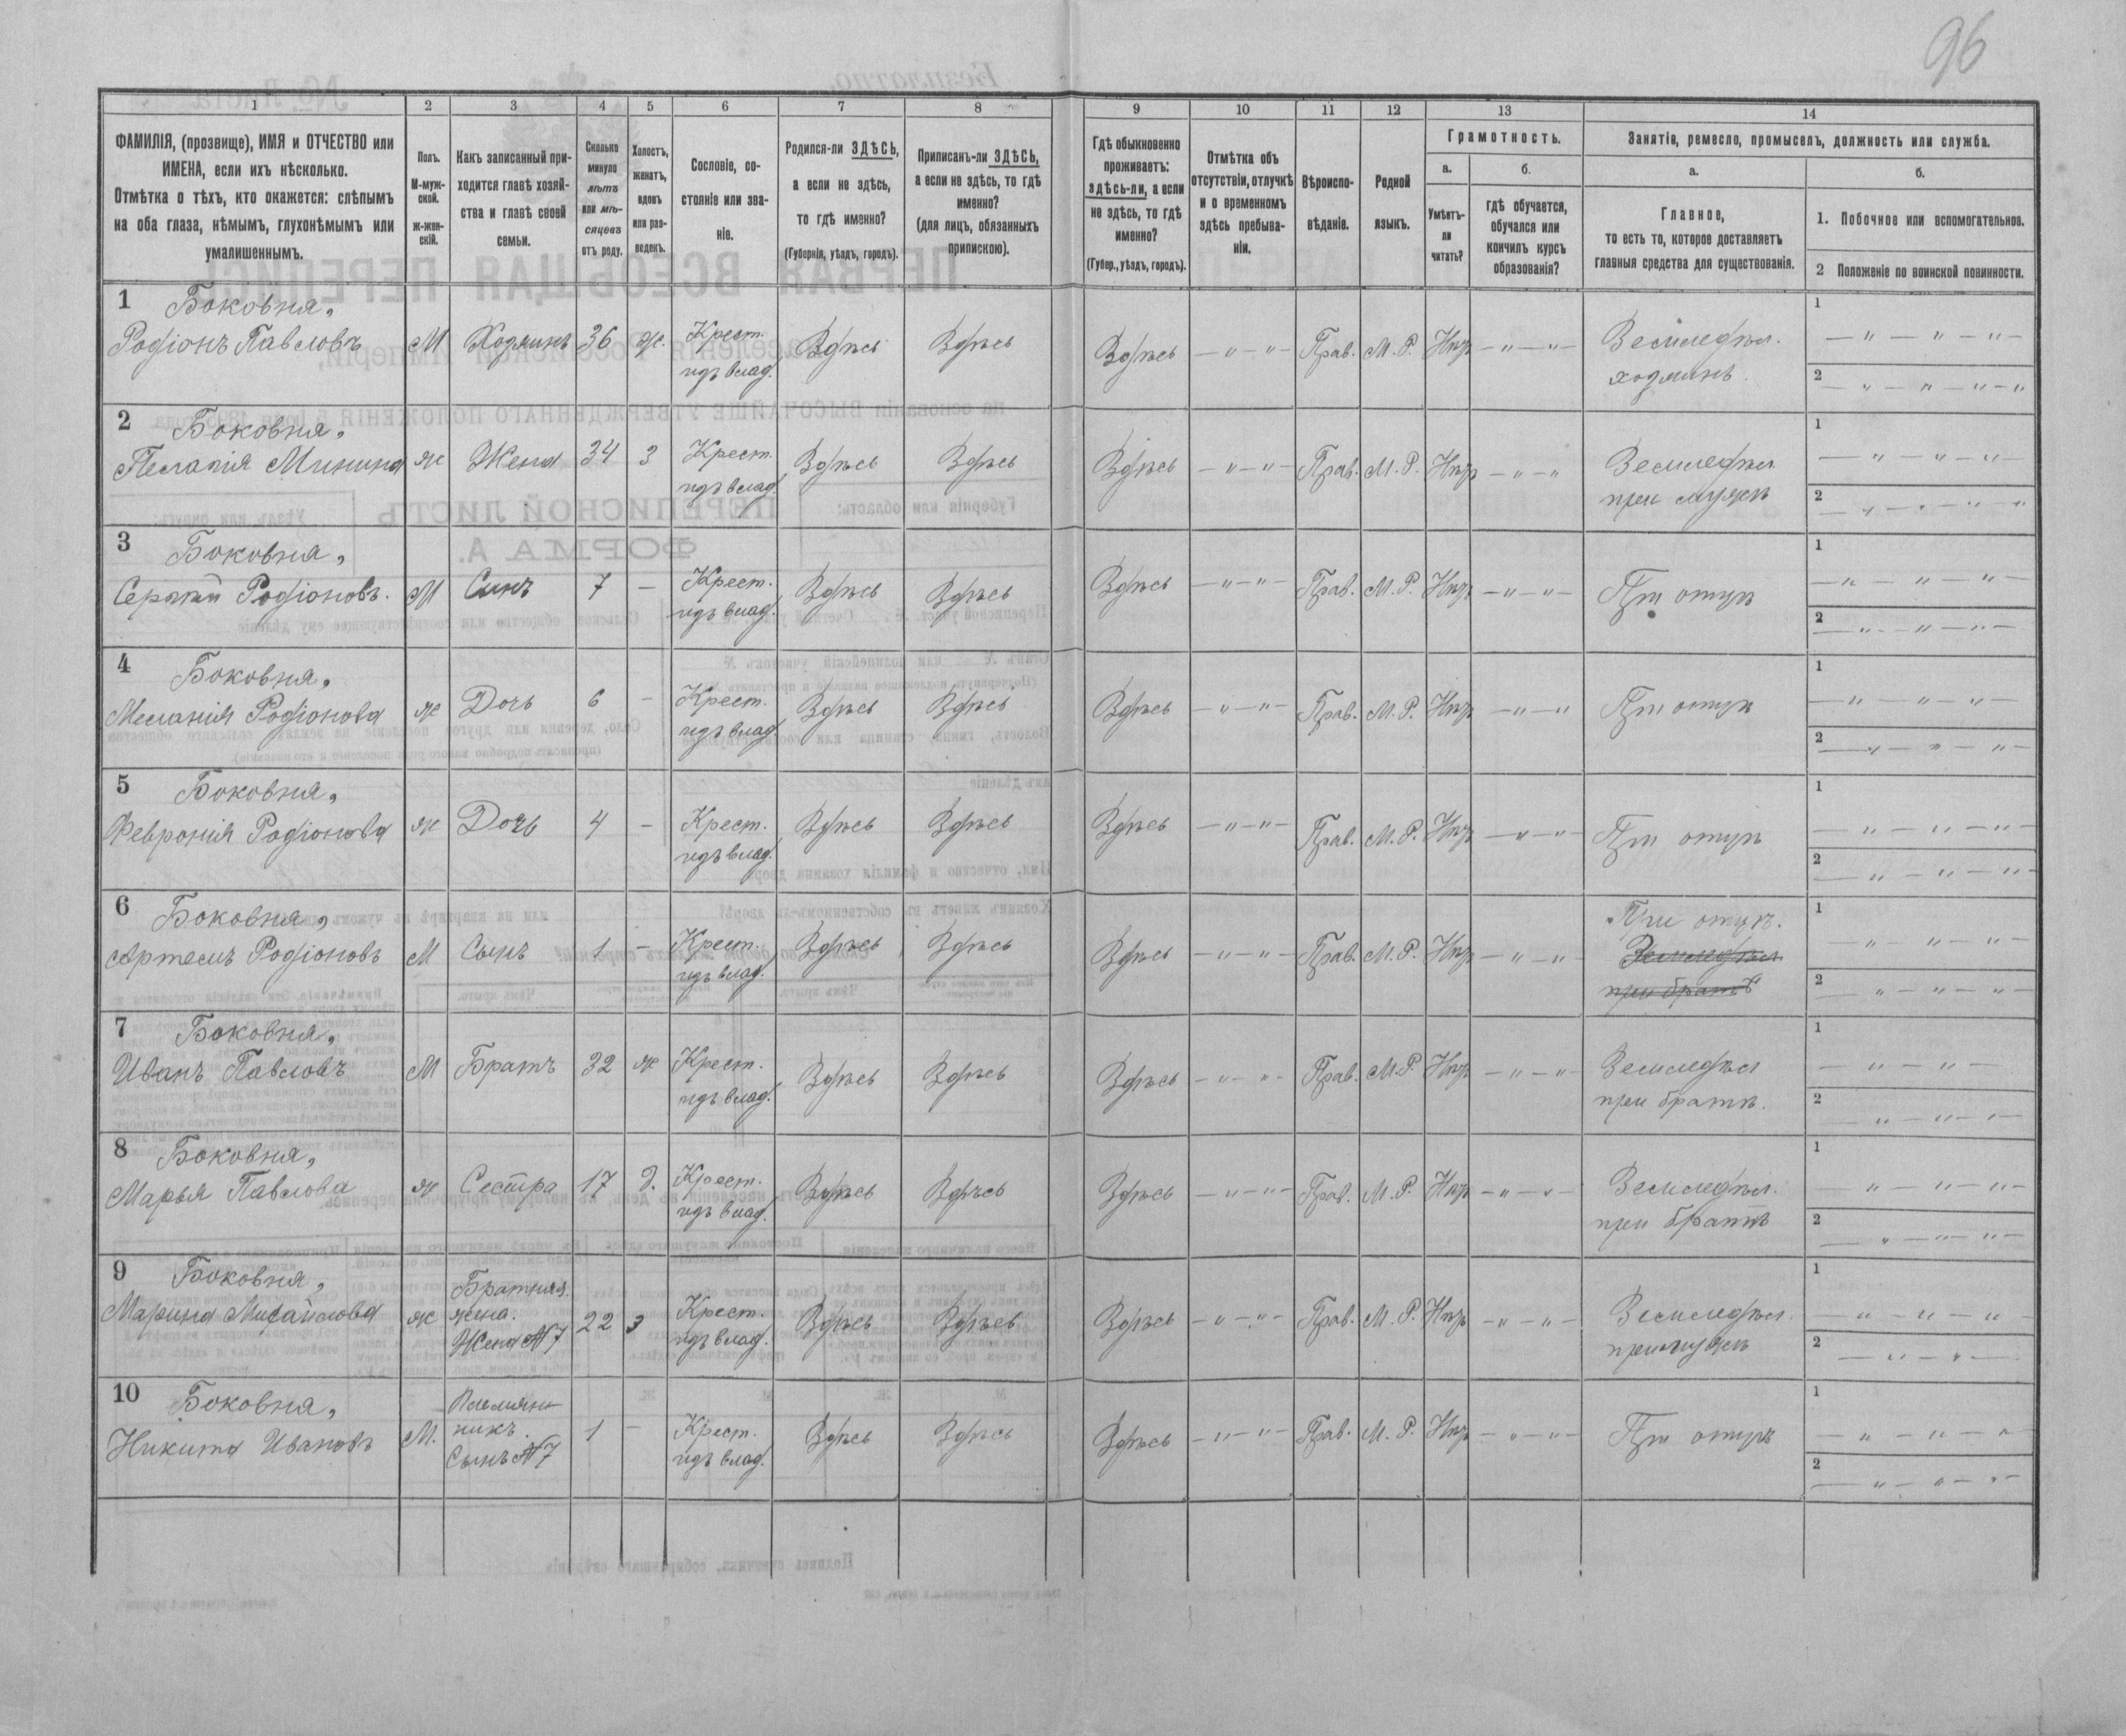 96
1 2 3 4 5 6 7 8 9 10 11 12 13 14
ФАМИЛІЯ, (прозвище), ИМЯ и ОТЧЕСТВО или
ИМЕНА, если ихъ нѣсколько.
Отмѣтка о тѣхъ, кто окажется: слѣпымъ
на оба глаза, нѣмымъ, глухонѣмымъ или
умалишеннымъ.
Полъ.
М-муж-
ской.
ж-жен-
скій.
Какъ записанный при-
ходится главѣ хозяй-
ства и главѣ своей
семьи.
Сколько
минуло
лѣтъ
или мѣ-
сяцевъ
отъ роду.
Холостъ,
женатъ,
вдовъ
или раз-
веденъ.
Сословіе, со-
стояніе или зва-
ніе.
Родился-ли ЗДѢСЬ,
а если не здѣсь,
то гдѣ именно?
(Губернія, уѣздъ, городъ).
Приписанъ-ли ЗДѢСЬ,
а если не здѣсь, то гдѣ
именно?
(для лицъ, обязанныхъ
припискою).
Гдѣ обыкновенно
проживаетъ:
здѣсь-ли, а если
не здѣсь, то гдѣ
именно?
(Губер., уѣздъ, городъ).
Отмѣтка объ
отсутствіи, отлучкѣ
и о временномъ
здѣсь пребыва-
ніи.
Вѣроиспо-
вѣданіе.
Родной
языкъ.
Грамотность.
а.
Умѣетъ-
ли
читать?
б.
гдѣ обучается,
обучался или
кончилъ курсъ
образованія?
Занятіе, ремесло, промыселъ, должность или служба.
а.
Главное,
то есть то, которое доставляетъ
главныя средства для существованія.
б.
1. Побочное или вспомогательное.
2 Положеніе по воинской повинности.
1 Боковня,
Родіонъ Павловъ М Хозяинъ 36 ж. Крест. Здѣсь Здѣсь Здѣсь — " — " — Прав. М. Р. Нѣтъ — " — " — Земледѣл. 1 — " — " — " —
изъ влад. хозяинъ. 2 — " — " — " — "
2 Боковня,
Пелагія Минина ж Жена 34 з Крест. Здѣсь Здѣсь Здѣсь — " — " — Прав. М. Р. Нѣтъ — " — " Земледѣл 1 — " — " — " —
изъ влад. при мужѣ 2 — " — " — " — "
3 Боковня,
Сергѣй Родіоновъ. М Сынъ 7 — Крест. Здѣсь Здѣсь Здѣсь — " — " — Прав. М. Р. Нѣтъ — " — " — При отцѣ 1 — " — " — " —
изъ влад. 2 — " — " — " —
4 Боковня,
Меланія Родіонова ж Дочь 6 — Крест. Здѣсь Здѣсь Здѣсь — " — " — Прав. М. Р. Нѣтъ — " — " При отцѣ 1 — " — " — " —
изъ влад. 2 — " — " — " —
5 Боковня,
Февронія Родіонова ж Дочь 4 — Крест. Здѣсь Здѣсь Здѣсь — " — " — Прав. М. Р. Нѣтъ — " — " — При отцѣ 1 — " — " — " —
изъ влад. 2 — " — " — " —
6 Боковня, При отцѣ.
Артемъ Родіоновъ М Сынъ 1 — Крест. Здѣсь Здѣсь Здѣсь — " — " — Прав. М. Р. Нѣтъ — " — " — Земледѣл 1 — " — " — " —
изъ влад. при братѣ 2 — " — " — " —
7 Боковня,
Иванъ Павловъ М Братъ 32 ж Крест. Здѣсь Здѣсь Здѣсь — " — " — Прав. М. Р. Нѣтъ — " — " — Земледѣл 1 — " — " —
изъ влад. при братѣ. 2 — " — " — " —
8 Боковня,
Марья Павлова ж Сестра 17 д. Крест. Здѣсь Здѣсь Здѣсь — " — " — Прав. М. Р. Нѣтъ — " — " — Земледѣл. 1 — " — " — " —
изъ влад. при братѣ 2 — " — " — " —
9 Боковня, Братняя
Марина Михайлова ж жена. 22 з Крест. Здѣсь Здѣсь Здѣсь — " — " — Прав. М. Р. Нѣтъ — " — " — Земледѣл. 1 — " — " — " —
Жена №7 изъ влад. при мужѣ 2 — " — " —
10 Боковня, Племян-
Никита Ивановъ М. никъ. 1 — Крест. Здѣсь Здѣсь Здѣсь — " — " — Прав. М. Р. Нѣтъ — " — " — При отцѣ 1 — " — " — "
Сынъ №7 изъ влад. 2 — " — " — " —